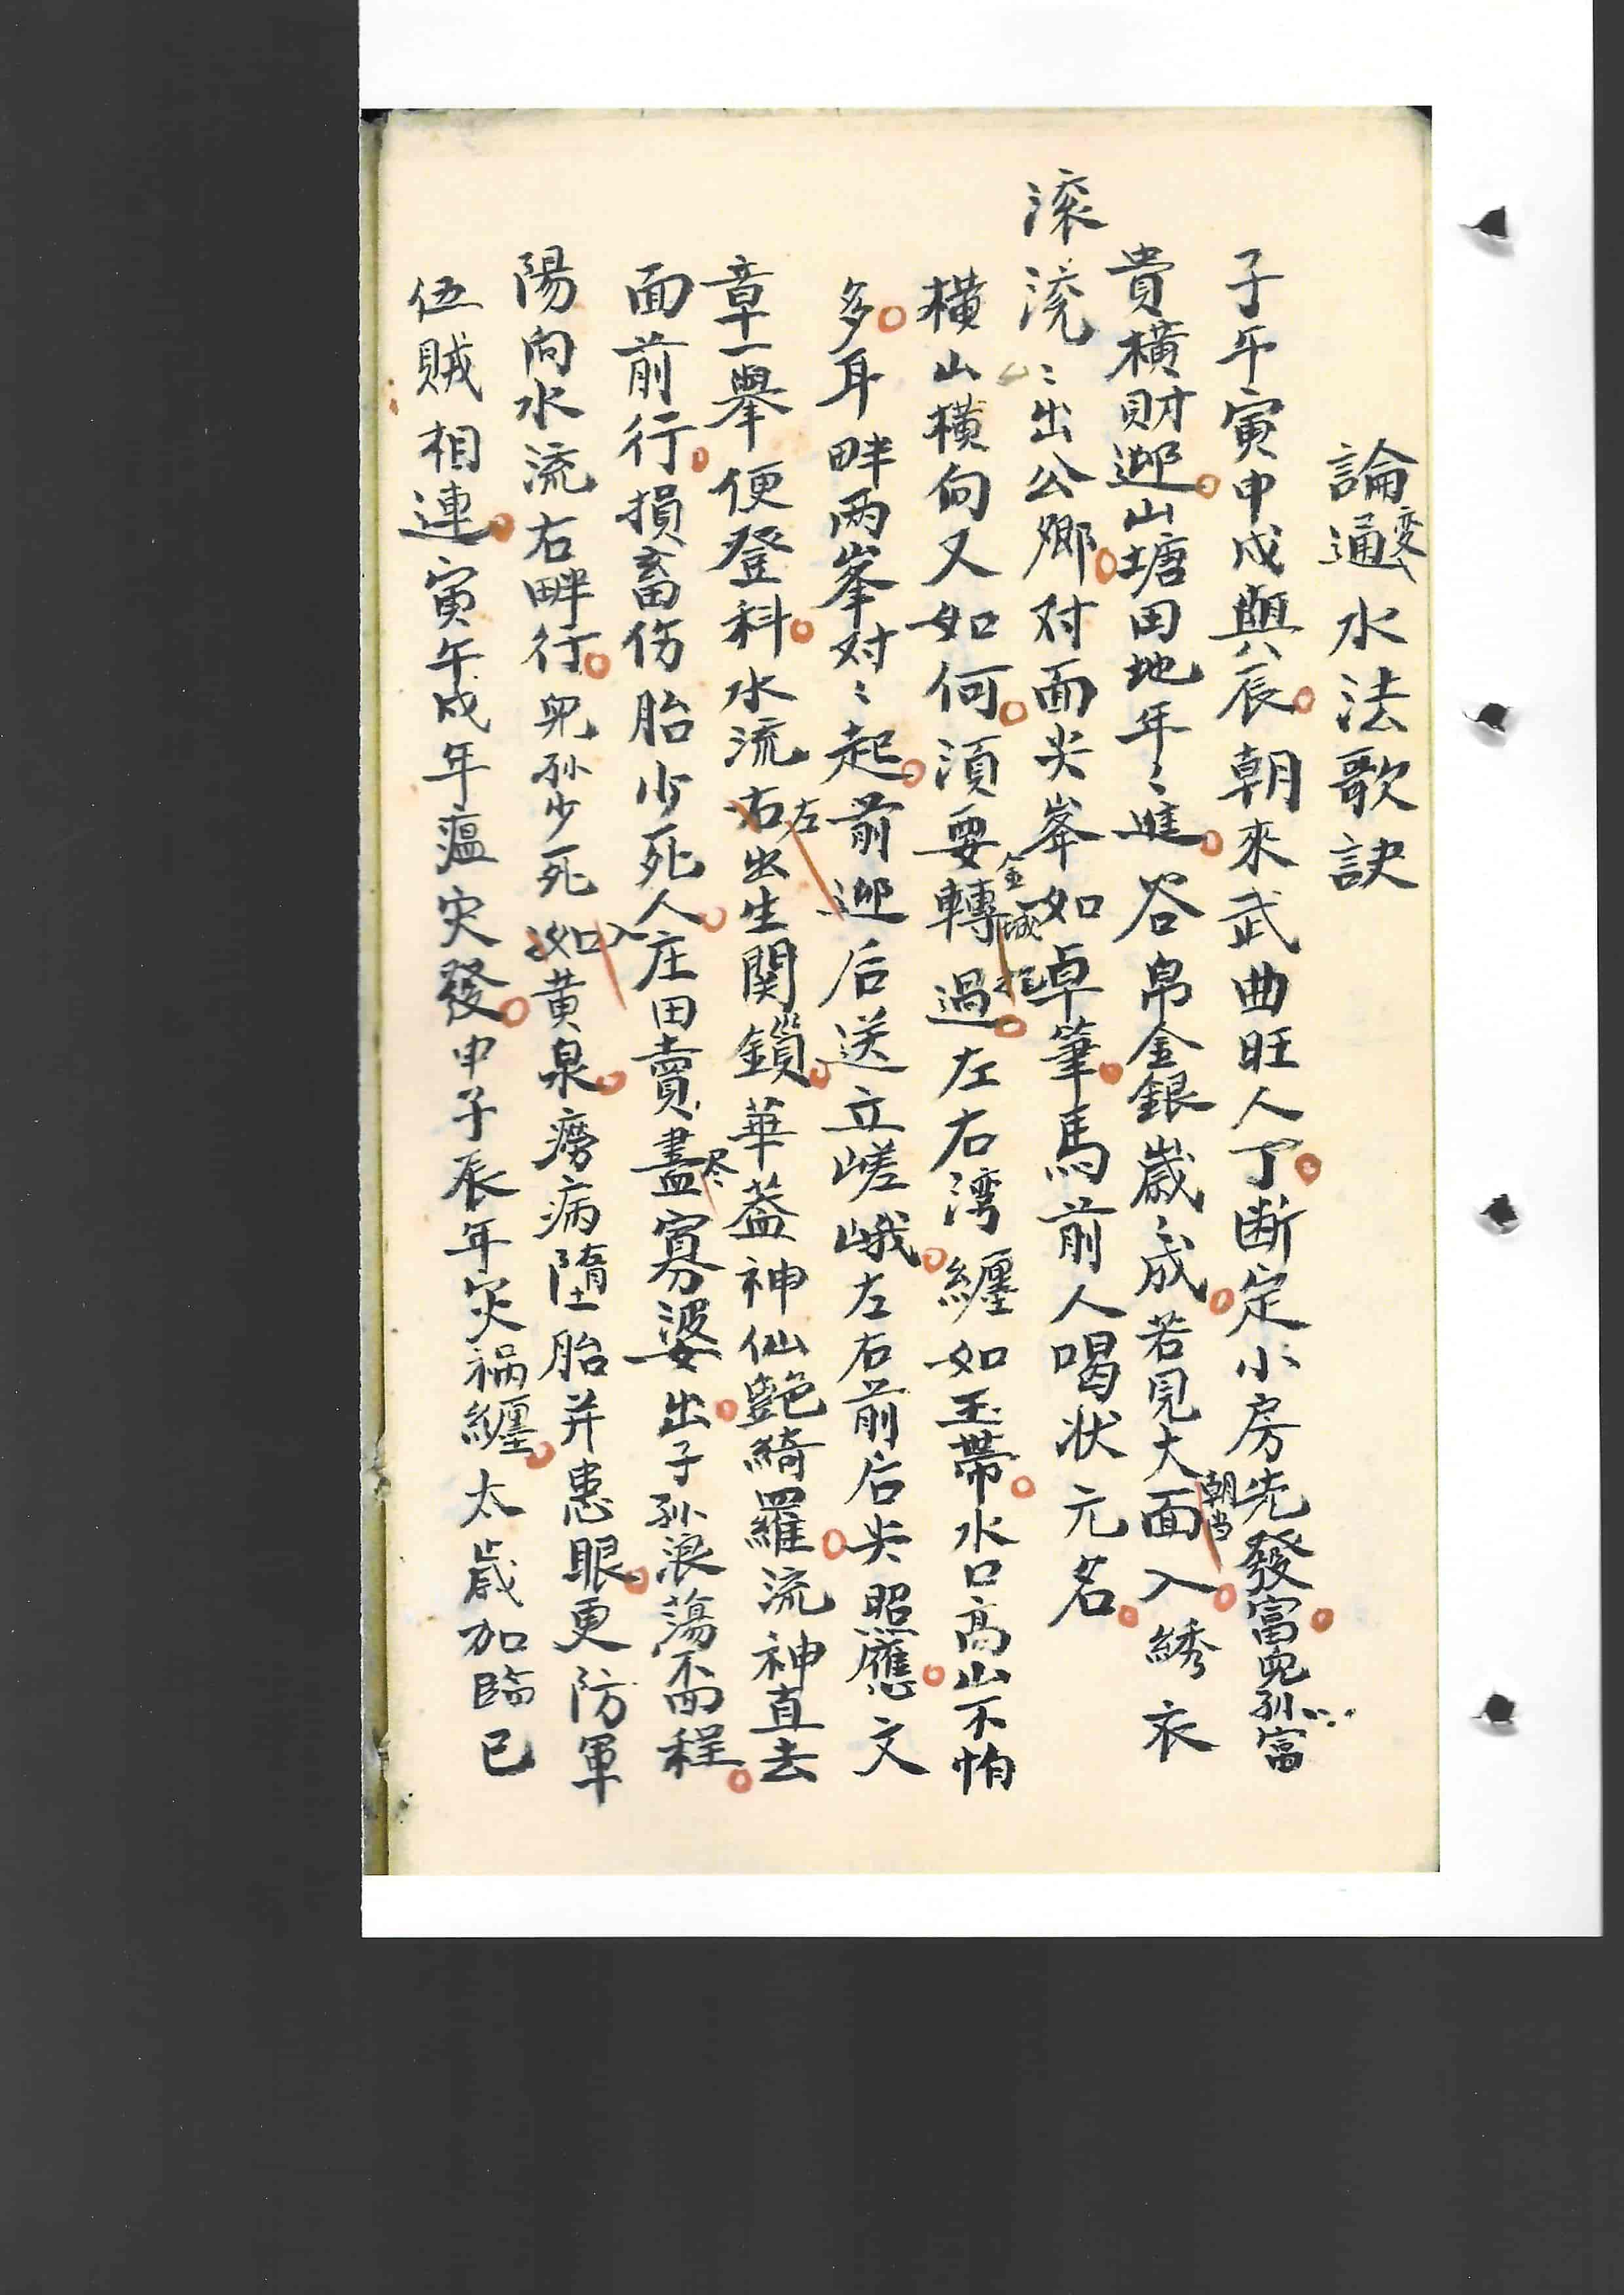 論通变水法歌訣
子午寅申戌與辰朝來武曲旺人丁断定小房先發富児孫富
貴橫財迎山塘田地年〻進谷帛金銀歲〻成若見大面朝当入綉衣
滚
滚〻出公卿对面尖峯如卓筆馬前人喝状元名
橫山橫向又如何須要轉金城過左右湾纏如玉帶水口高山不怕
多耳畔两峯对〻起前迎后送立嵯峨左右前后尖照應文
章一舉便登科水流右左出生関鎖華蓋神仙艶綺羅流神直去
面前行損畜伤胎少死人庄田賣盡尽寡婆出子孫浪蕩不面程
陽向水流右畔行児孫少死如入黄泉癆病墮胎并患眼更防軍
伍賊相連寅午戌年瘟灾發申子辰年灾禍纏太歲加臨已